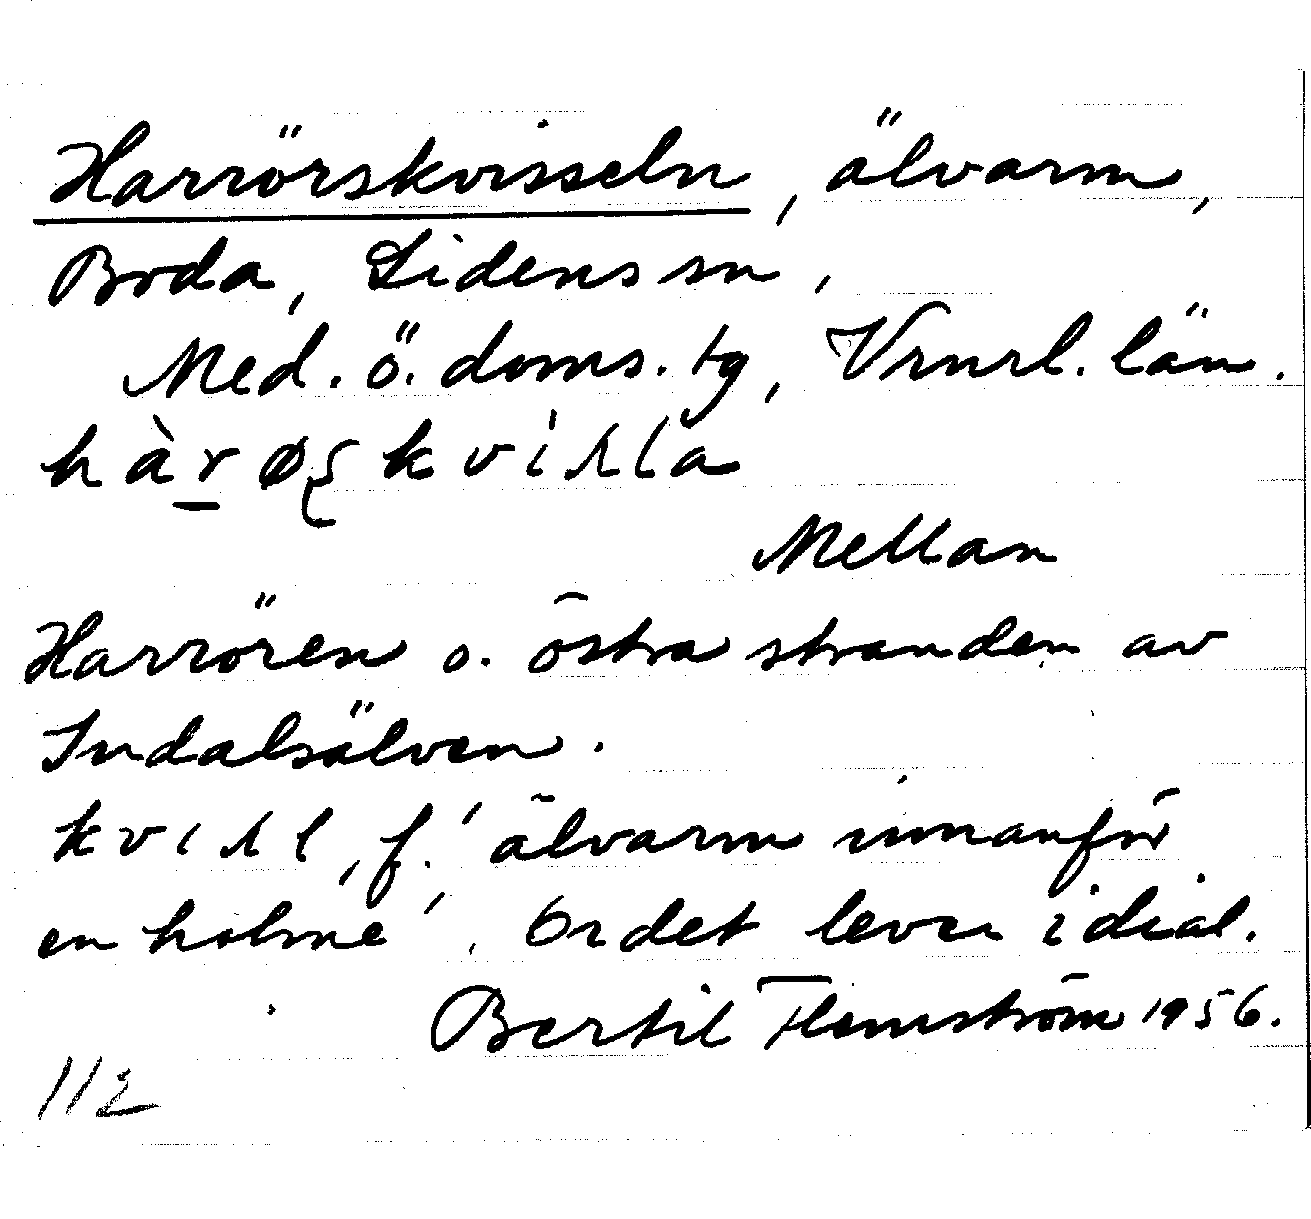 Harrörskvisseln, älvarm,
Boda, Lidens sn,
Med. ö. doms. tg, Vrnrl. län.
Mellan
Harrören o. östra stranden av
Indalsälven.
f. 'älvarm innanför
en holme'. Ordet lever i dial.
Bertil Flemström 1956.
112